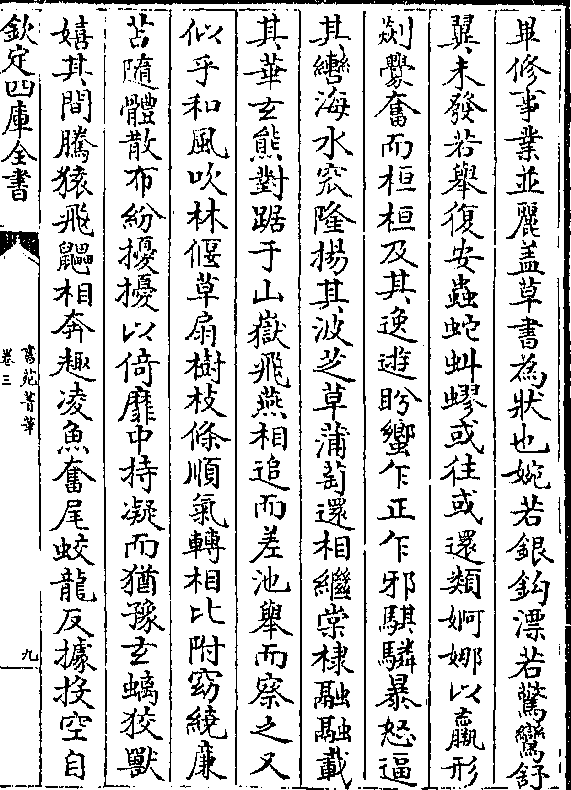 畢修事業並麗蓋草書為狀也婉若銀鈎漂若驚鸞舒
翼未發若舉復安蟲蛇虯蟉或往或還類婀娜以羸形
欻奮亹而桓桓及其逸遊盻蠁乍正乍邪騏驎暴怒逼
其轡海水窊隆揚其波芝草蒲萄還相繼棠棣融融載
其華玄熊對踞于山嶽飛燕相追而差池舉而察之又
似乎和風吹林偃草扇樹枝條順氣轉相比附窈繞廉
苫隨體散布紛擾擾以倚靡中持凝而猶豫玄螭狡獸
嬉其間騰猿飛鼯相奔趣凌魚奮尾蛟龍反據投空自
欽定四庫全書
書苑菁華
卷三
九